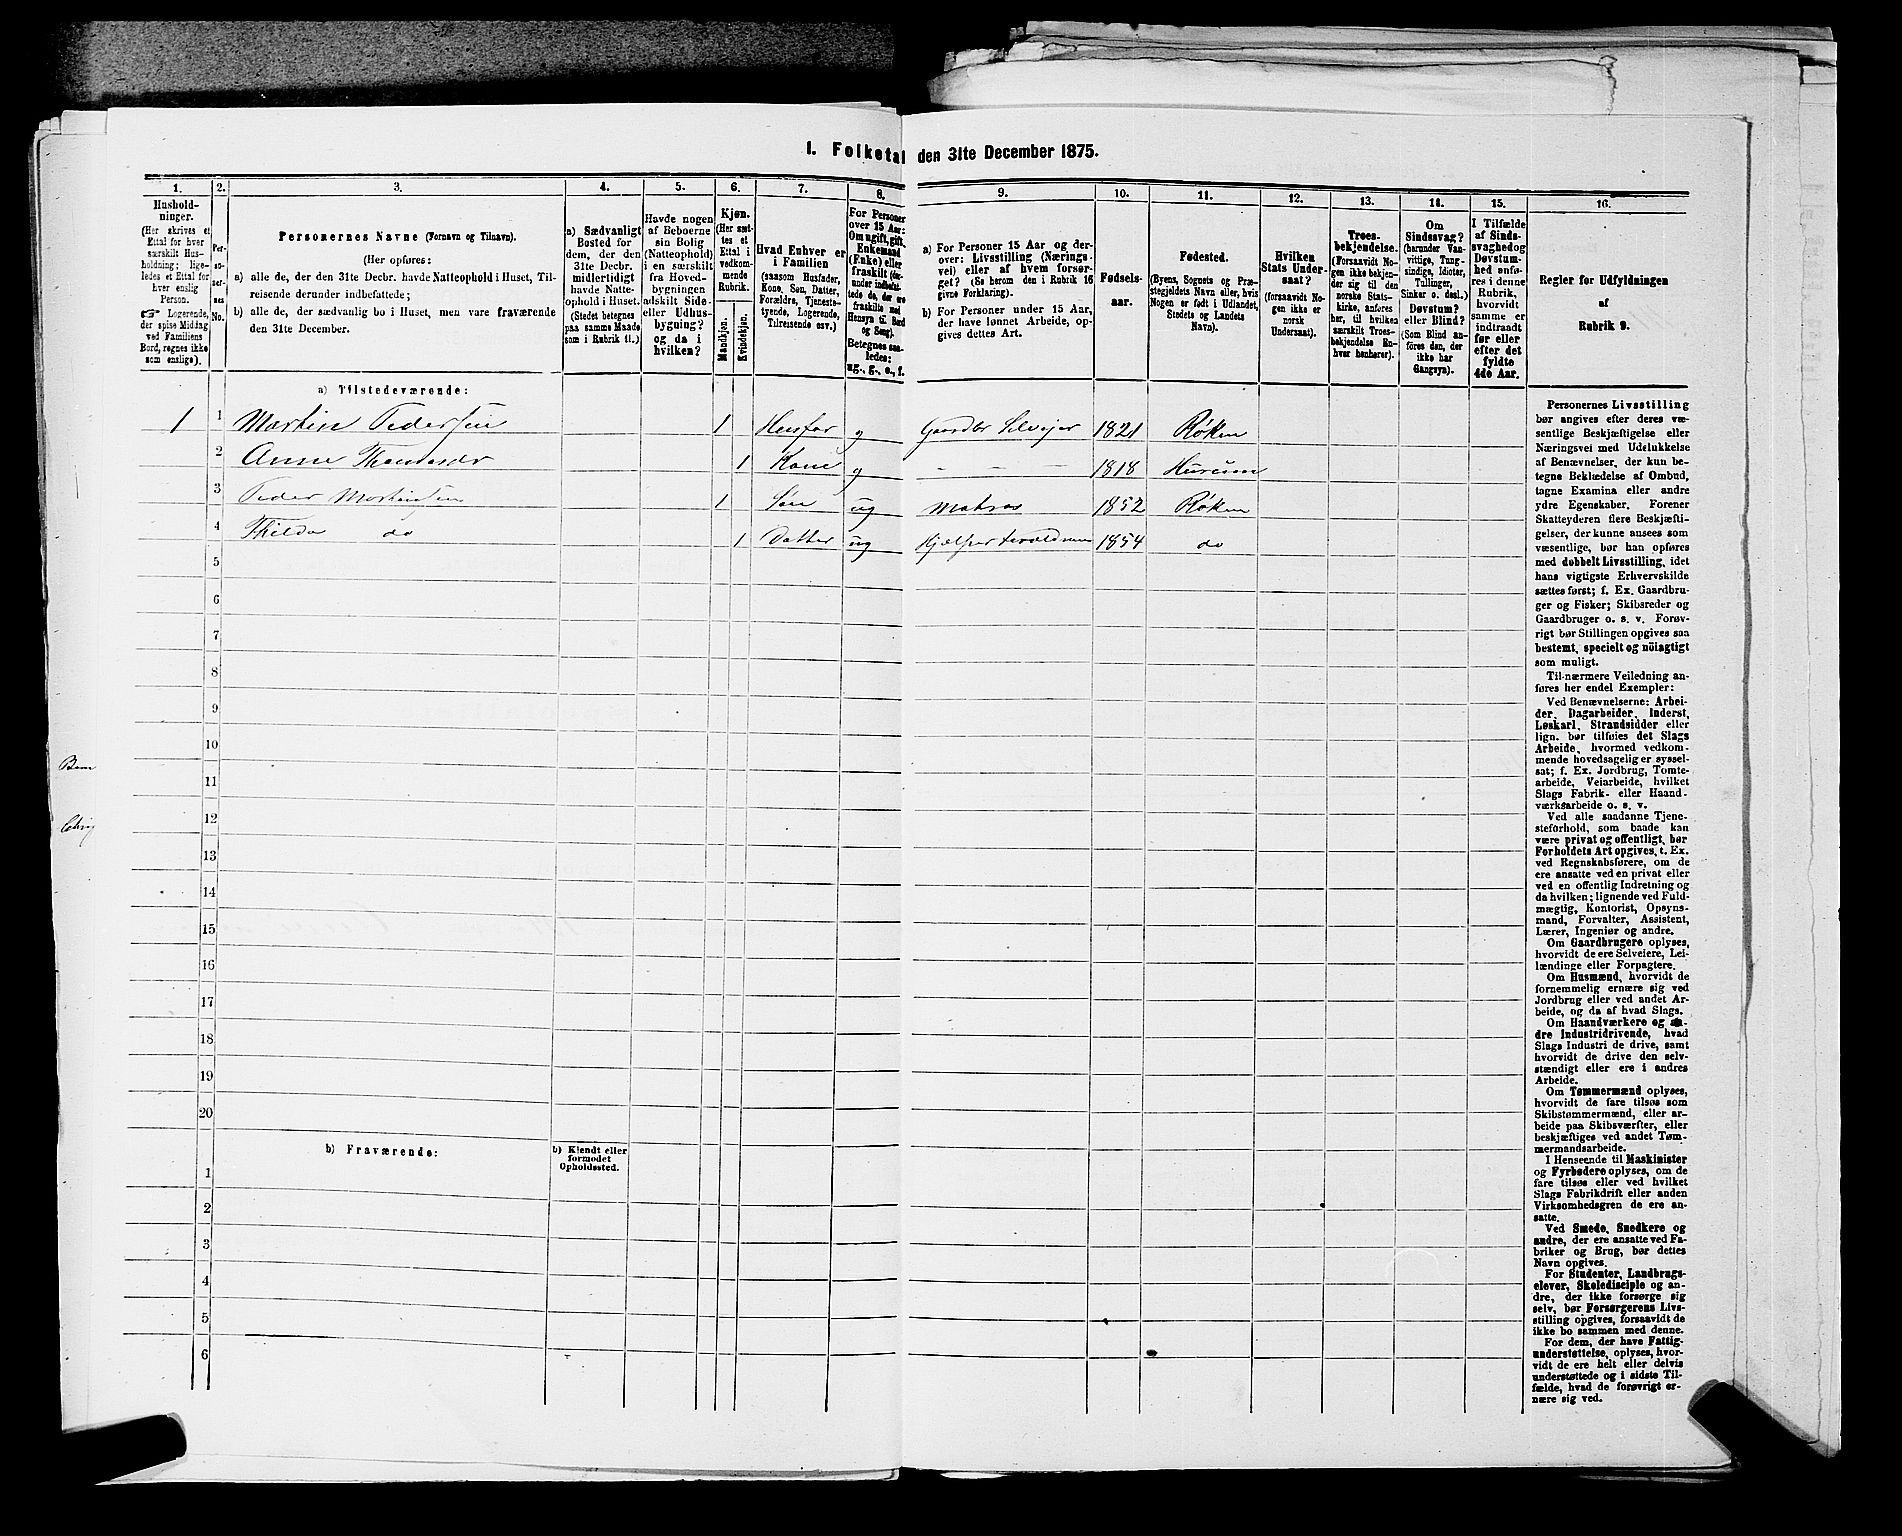 I. Folketal den 31te December 1875.
1. 2. 3. 4. 5. 6. 7. 8. 9. 10. 11. 12. 13. 14. 15. 16.
Hushold-
ninger.
(Her skrives et
Ettal for hver
særskilt Hus-
holdning; lige-
ledes et Ettal for
hver enslig
Person.
☞ Logerende,
der spise Middag
ved Familiens
Bord, regnes ikke
som enslige).
Per-
so-
ner-
nes
No.
Personernes Navne (Fornavn og Tilnavn).
(Her opføres:
a) alle de, der den 31te Decbr. havde Natteophold i Huset, Til-
reisende derunder indbefattede;
b) alle de, der sædvanlig bo i Huset, men vare fraværende
den 31te December.
a) Sædvanligt
Bosted for
dem, der den
31te Decbr.
midlertidigt
havde Natte-
ophold i Huset.
(Stedet betegnes
paa samme Maade
som i Rubrik 11.)
Havde nogen
af Beboerne
sin Bolig
(Natteophold)
i en særskilt
fra Hoved-
bygningen
adskilt Side-
eller Udhus-
bygning?
og da i
hvilken?
Kjøn.
(Her sæt-
tes et
Ettal i
vedkom-
mende
Rubrik.
Mandkjøn.
Kvindekjøn.
Hvad Enhver er
i Familien
(saasom Husfader,
Kone, Søn, Datter,
Forældre, Tjeneste-
tyende, Logerende,
Tilreisende osv.)
For Personer
over 15 Aar:
Om ugift, gift,
Enkemand
(Enke) eller
fraskilt (der-
under indbefat-
tede de, der ere
fraskilte med
Hensyn til Bord
og Seng).
Betegnes saa-
ledes:
ug., g., e., f.
a) For Personer 15 Aar og der-
over: Livsstilling (Nærings-
vei) eller af hvem forsør-
get? (Se herom den i Rubrik 16
givne Forklaring).
b) For Personer under 15 Aar,
der have lønnet Arbeide, op-
gives dettes Art.
Fødsels-
aar.
Fødested.
(Byens, Sognets og Præ-
stegjeldets Navn eller, hvis
Nogen er født i Udlandet,
Stedets og Landets
Navn).
Hvilken
Stats Under-
saat?
(forsaavidt No-
gen ikke er
norsk
Undersaat).
Troes-
bekjendelse.
(Forsaavidt No-
gen ikke bekjen-
der sig til den
norske Stats-
kirke, anføres
her, til hvilken
særskilt Troes-
bekjendelse En-
hver henhører).
Om
Sindssvag?
(herunder Van-
vittige, Tung-
sindige, Idioter,
Tullinger,
Sinker o. desl.)
Døvstum?
eller Blind?
(Som Blind an-
føres den, der
ikke har
Gangsyn).
I Tilfælde
af Sinds-
svaghed og
Døvstum-
hed anfø-
res i denne
Rubrik,
hvorvidt
samme er
indtraadt
før eller
efter det
fyldte
4de Aar.
Regler for Udfyldningen
af
Rubrik 9.
a) Tilstedeværende:
1 1 Martin Pedersen 1 Husfar g Gaardbr Selveier 1821 Røken
2 Anne Thomasdr 1 Kone g — — — 1818 Hurum
3 Peder Martinsen 1 Søn ug Matros 1852 Røken
4 Thilda do 1 Datter ug 1854 do
5
6
7
8
9
10
11
12
13
14
15
16
17
18
19
20
b) Fraværende:
b) Kjendt eller
formodet
Opholdssted.
1
2
3
4
5
6
Personernes Livsstilling
bør angives efter deres væ-
sentlige Beskjæftigelse eller
Næringsvei med Udelukkelse
af Benævnelser, der kun be-
tegne Beklædelse af Ombud,
tagne Examina eller andre
ydre Egenskaber. Forener
Skatteyderen flere Beskjæfti-
gelser, der kunne ansees som
væsentlige, bør han opføres
med dobbelt Livsstilling, idet
hans vigtigste Erhvervskilde
sættes først; f. Ex. Gaardbru-
ger og Fisker; Skibsreder og
Gaardbruger o. s. v. Forøv-
rigt bør Stillingen opgives saa
bestemt, specielt og nöiagtigt
som muligt.
Til nærmere Veiledning an-
føres her endel Exempler:
Ved Benævnelserne: Arbei-
der, Dagarbeider, Inderst,
Løskarl, Strandsidder eller
lign. bør tilføies det Slags
Arbeide, hvormed vedkom-
mende hovedsagelig er syssel-
sat; f. Ex. Jordbrug, Tomte-
arbeide, Veiarbeide, hvilket
Slags Fabrik- eller Haand-
værksarbeide o. s. v.
Ved alle saadanne Tjene-
steforhold, som baade kan
være privat og offentligt, bør
Forholdets Art opgives, t. Ex.
ved Regnskabsførere, om de
ere ansatte ved en privat eller
ved en offentlig Indretning og
da hvilken; lignende ved Fuld-
mægtig, Kontorist, Opsyns-
mand, Forvalter, Assistent,
Lærer, Ingeniør og andre.
Om Gaardbrugere oplyses,
hvorvidt de ere Selveiere, Lei-
lændinge eller Forpagtere.
Om Husmænd, hvorvidt de
fornemmelig ernære sig ved
Jordbrug eller ved andet Ar-
beide, og da af hvad Slags.
Om Haandværkere og an-
dre Industridrivende, hvad
Slags Industri de drive, samt
hvorvidt de drive den selv-
stændigt eller ere i andres
Arbeide.
Om Tømmermænd oplyses,
hvorvidt de fare tilsøs som
Skibstømmermænd, eller ar-
beide paa Skibsværfter, eller
beskjæftiges ved andet Tøm-
mermandsarbeide.
I Henseende til Maskinister
og Fyrbødere oplyses, om de
fare tilsøs eller ved hvilket
Slags Fabrikdrift eller anden
Virksomhedsgren de ere an-
satte.
Ved Smede, Snedkere og
andre, der ere ansatte ved Fa-
briker og Brug, bør dettes
Navn opgives.
For Studenter, Landbrugs-
elever, Skoledisciple og an-
dre, der ikke forsørge sig
selv, bør Forsørgerens Livs-
stilling opgives, forsaavidt de
ikke bo sammen med denne.
For dem, der have Fattig-
understøttelse, oplyses, hvor-
vidt de ere helt eller delvis
understøttede og i sidste Til-
fælde, hvad de forøvrigt er-
nære sig ved.